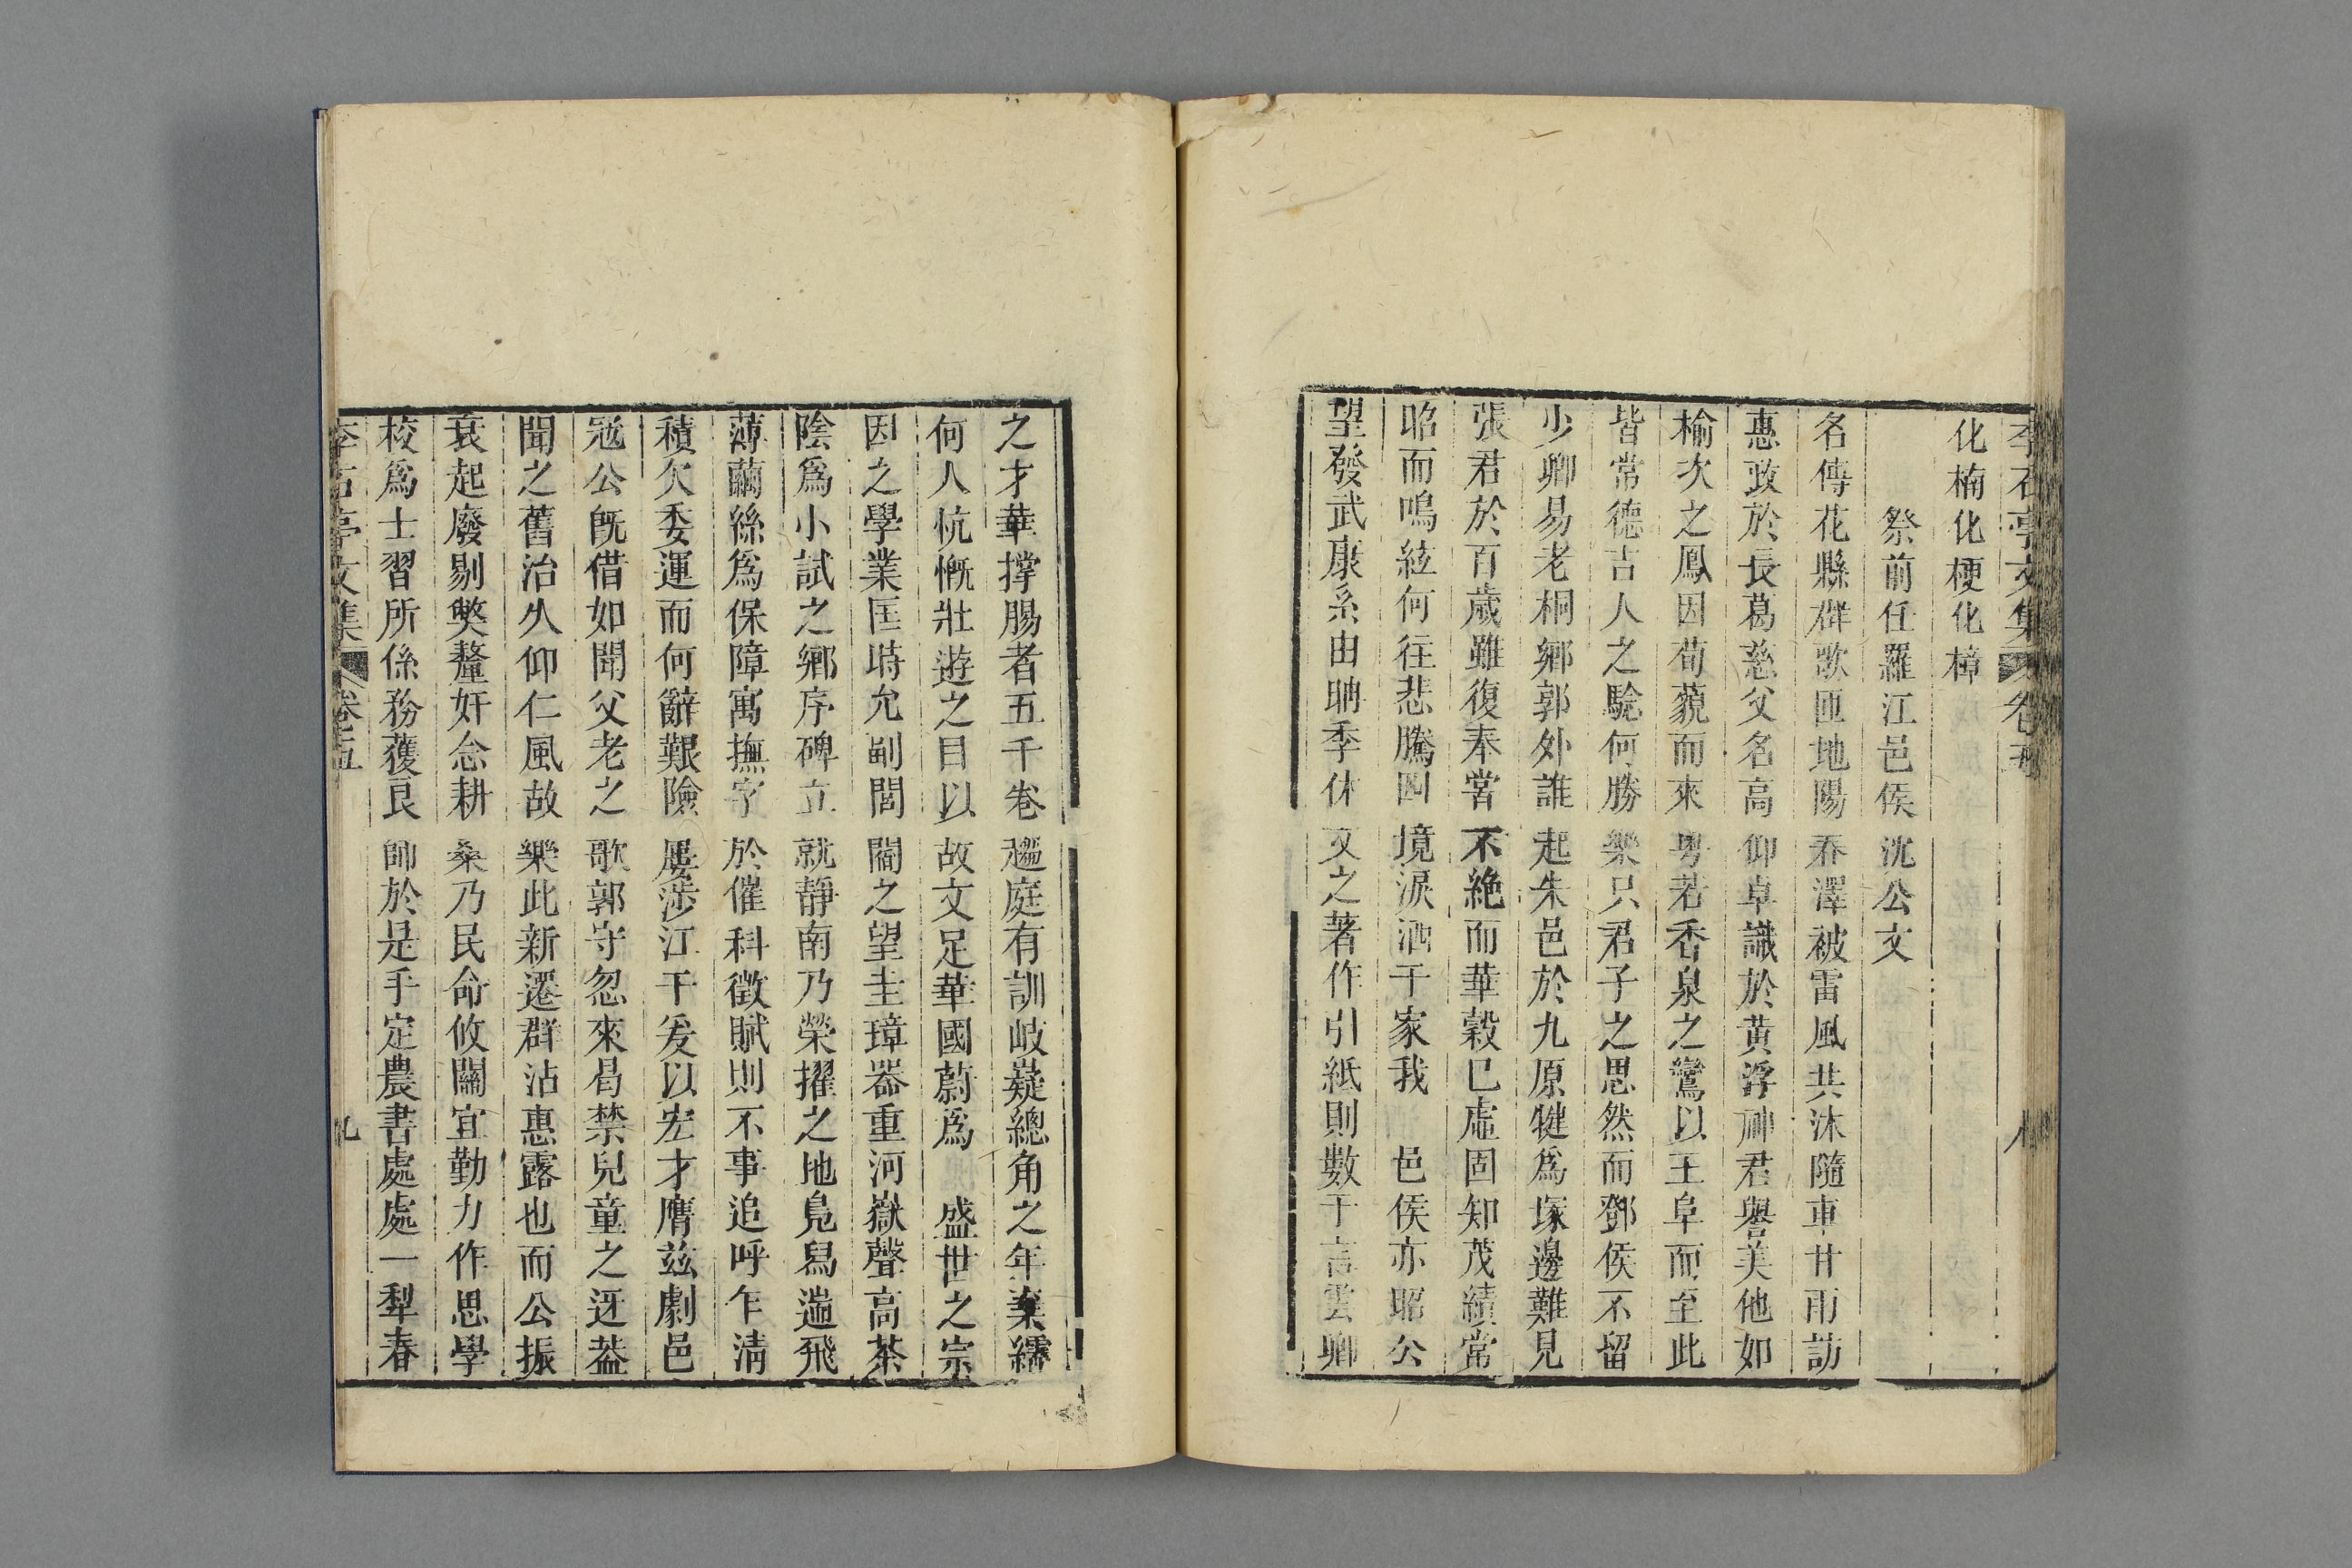 李石亭文集 卷五 八
化楠化梗化樟
祭前任羅江邑侯沈公文
名傳花縣群歌匝地陽春澤被雷風共沐隨車甘雨訪
惠政於長葛慈父名高仰卓識於黃浮神君譽美他如
榆次之鳳因荀藐而來粤若香泉之鸞以王阜而至此
皆常德吉人之驗何勝樂只君子之思然而鄧侯不留
少卿易老桐鄉郭外誰起朱邑於九原犍爲塚邊難見
張君於百歲雖復奉嘗不絶而華榖已虛固知茂績常
昭而鳴絃何往悲騰四境淚洒千家我 邑侯亦昭公
望發武康系由聃季休文之著作引紙則數千言雲卿
之才華撐腸者五千卷趨庭有訓岐嶷總角之年棄繻
何人忼慨壯遊之目以故文足華國蔚爲 盛世之宗
因之學業匡時允副閭閻之望圭璋器重河嶽聲高茶
陰爲小試之鄉序碑立就靜南乃榮擢之地鳧舄遄飛
薄繭絲爲保障寓撫字於催科徵賦則不事追呼乍淸
積欠委運而何辭艱險屢涉江干爰以宏才膺茲劇邑
冦公旣借如聞父老之歌郭守忽來曷禁兒童之迓葢
聞之舊治久仰仁風故樂此新遷群沾惠露也而公振
衰起廢剔獘釐奸念耕桑乃民命攸關宜勤力作思學
校爲士習所係務獲良師於是手定農書處處一犁春
李石亭文集 卷五 九